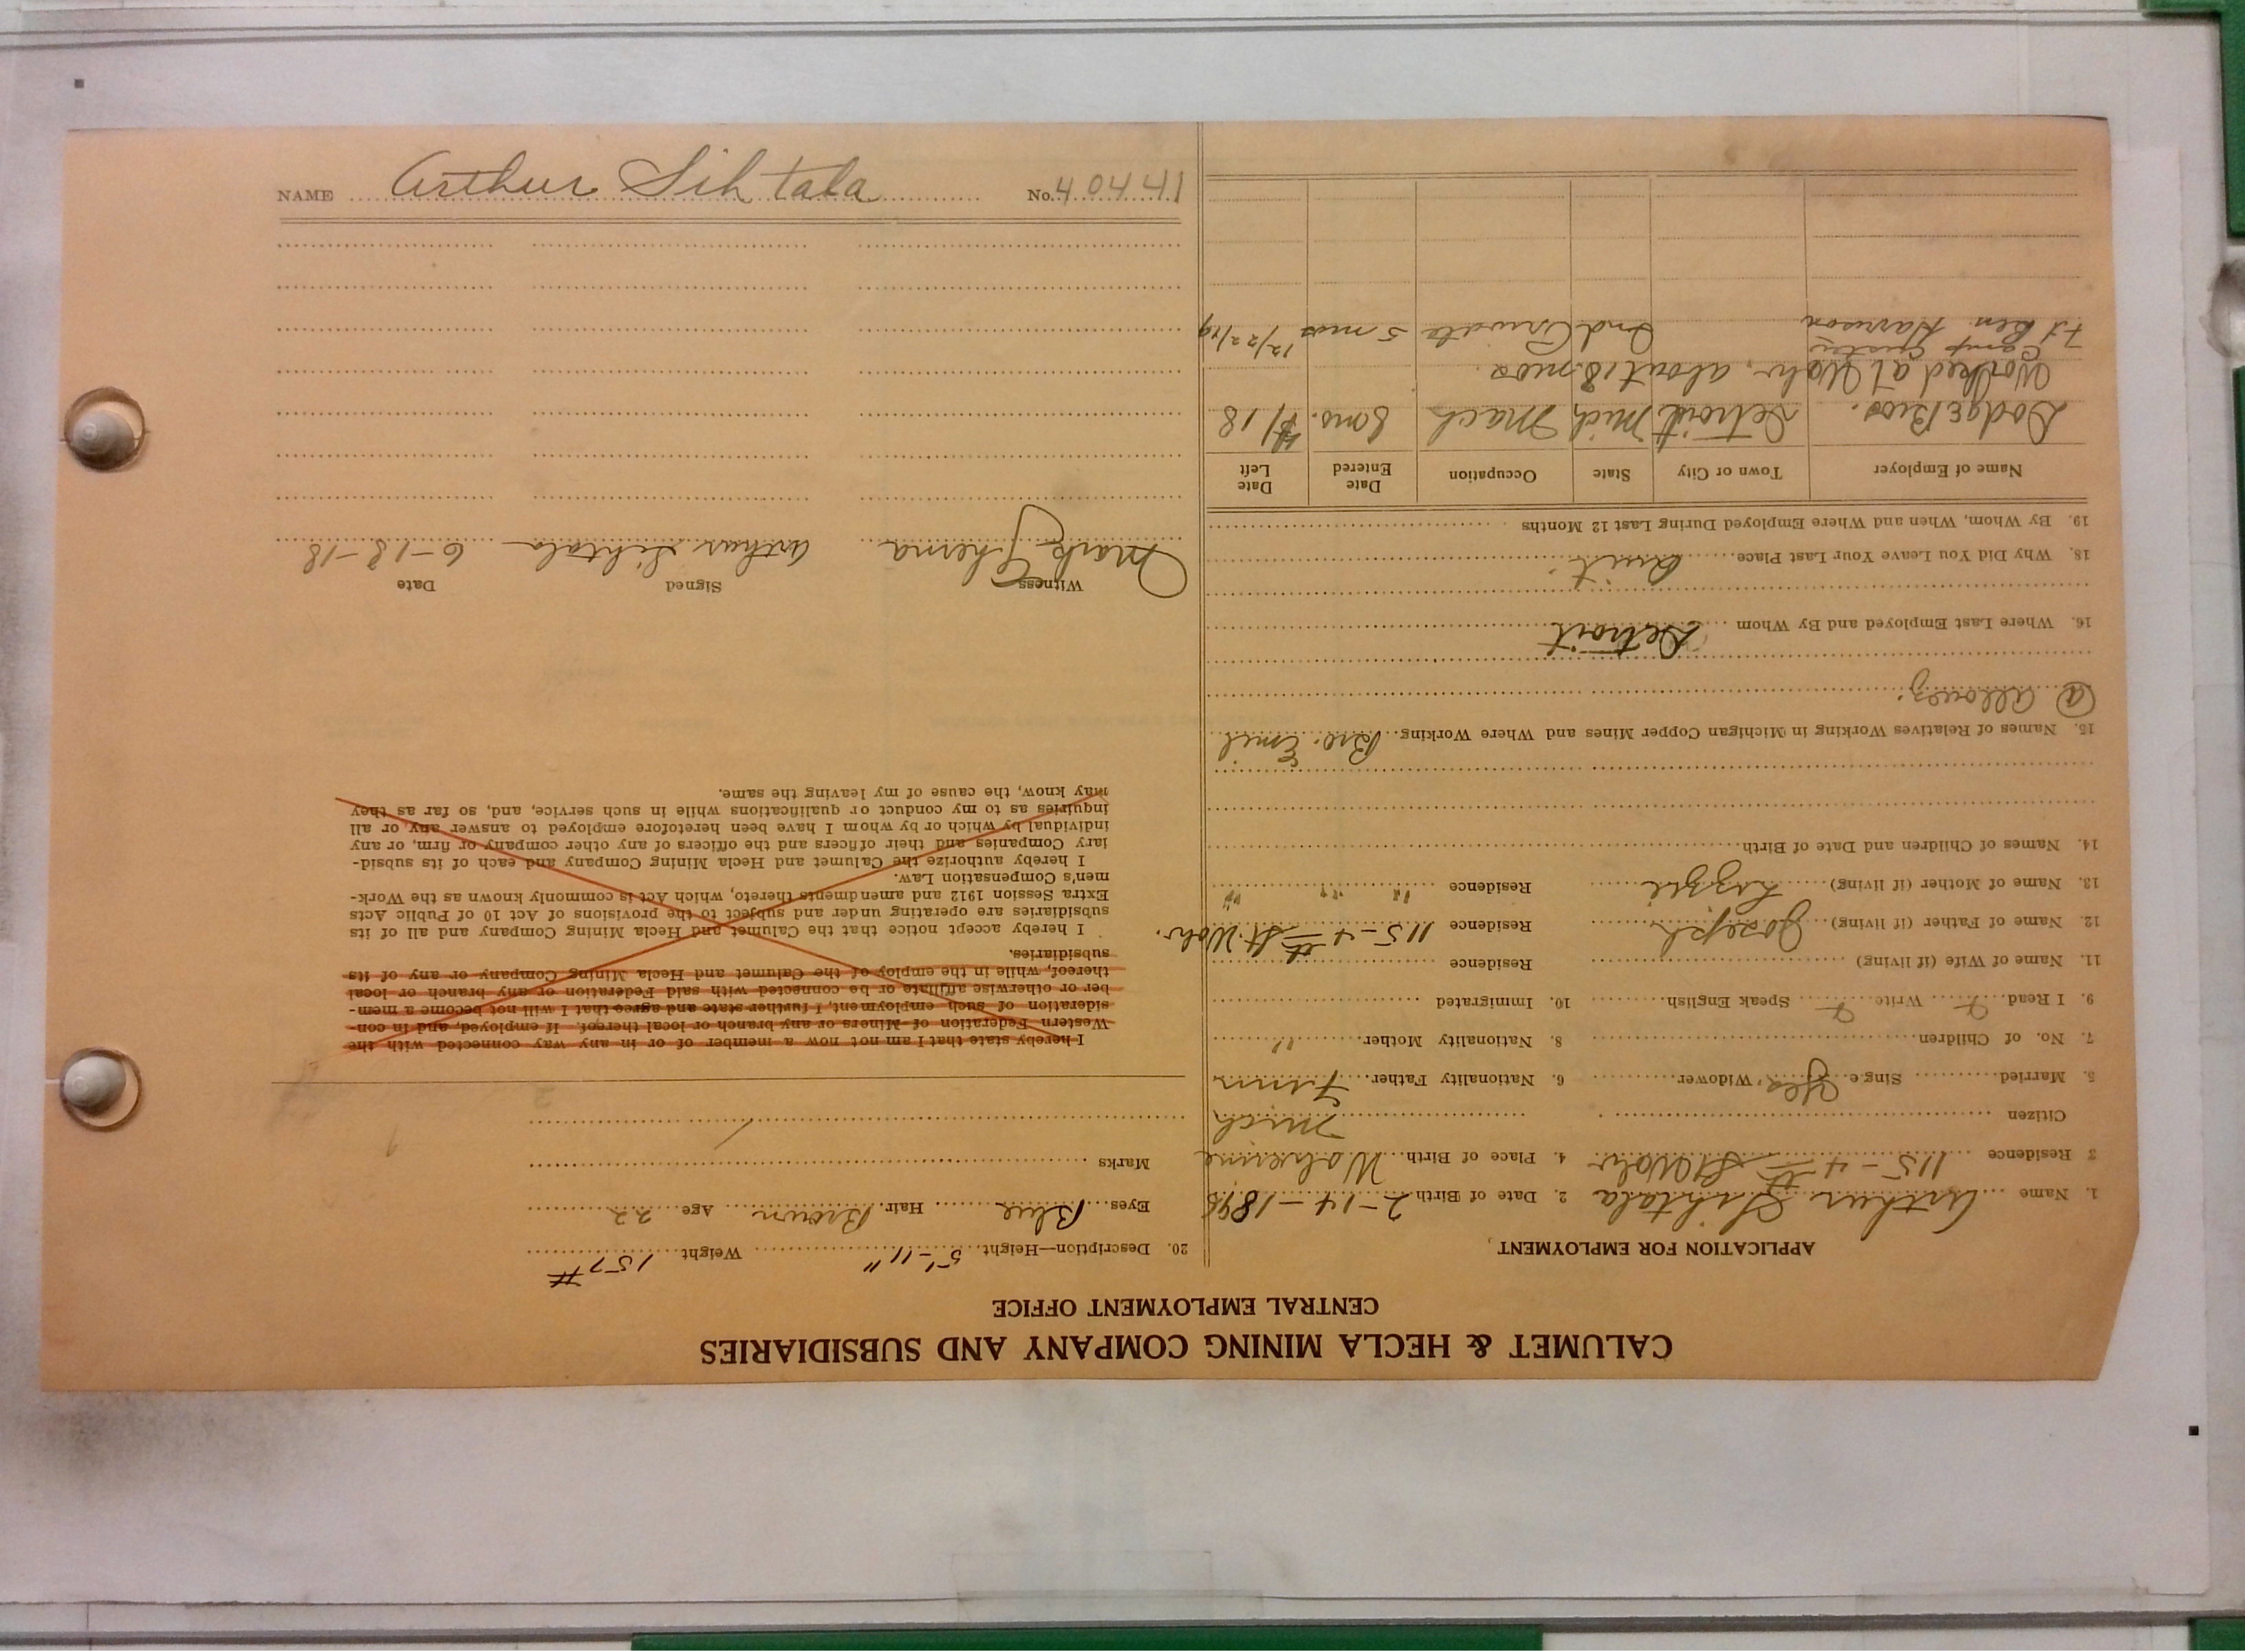 NAME Arthur Sihtala No. 40441
CALUMET & HECLA MINING COMPANY AND SUBSIDIARIES
CENTRAL EMPLOYMENT OFFICE
APPLICATION FOR EMPLOYMENT
1. Name Arthur Sihtala 2. Date of Birth 2-14-1896
3 Residence 115-4th St Wolv. 4. Place of Birth Wolverine
Citizen Mich
5. Married Single Yes. Widower 6. Nationality Father Finn
7. No. of Children 8. Nationality Mother "
9. I Read Write Speak English 10. Immigrated
11. Name of Wife (if living) Residence
12. Name of Father (if living) Joseph Residence 115-4th St. Wolv.
13. Name of Mother (if living) Lizzie Residence " " "
14. Names of Children and Date of Birth
15. Names of Relatives Working in Michigan Copper Mines and Where Working Bro. Emil
@ Allouez.
16. Where Last Employed and By Whom Detroit
18. Why Did You Leave Your Last Place Quit.
19. By Whom, When and Where Employed During Last 12 Months
Name of Employer Town or City State Occupation Date Entered Date Left
Dodge Bros. Detroit Mich Mach 8 mos. /18
Worked at Wolv. about 18 mos.
Camp Custer
Ft Ben Harrison Ind Private 5 mos 12/22/19
20. Description—Height 5'-11" Weight 157#
Eyes Blue Hair Brown Age 22
Marks
I hereby state that I am not now a member of or in any way connected with the
Western Federation of Miners or any branch or local thereof. If employed, and in con-
sideration of such employment, I further state and agree that I will not become a mem-
ber or otherwise affiliate or be connected with said Federation or any branch or local
thereof, while in the employ of the Calumet and Hecla Mining Company or any of its
subsidiaries.
I hereby accept notice that the Calumet and Hecla Mining Company and all of its
subsidiaries are operating under and subject to the provisions of Act 10 of Public Acts
Extra Session 1912 and amendments thereto, which Act is commonly known as the Work-
men's Compensation Law.
I hereby authorize the Calumet and Hecla Mining Company and each of its subsid-
iary Companies and their officers and the officers of any other company or firm, or any
individual by which or by whom I have been heretofore employed to answer any, or all
inquiries as to my conduct or qualifications while in such service, and, so far as they
may know, the cause of my leaving the same.
Witness Signed Date
Mark Arthur Sihtala 6-18-18